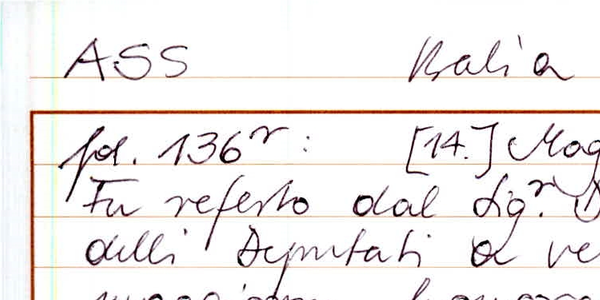 ASS Balia
fol. 136r: [14.] Mag
Fu referto dal Sigr. D
delli Deputati a ve